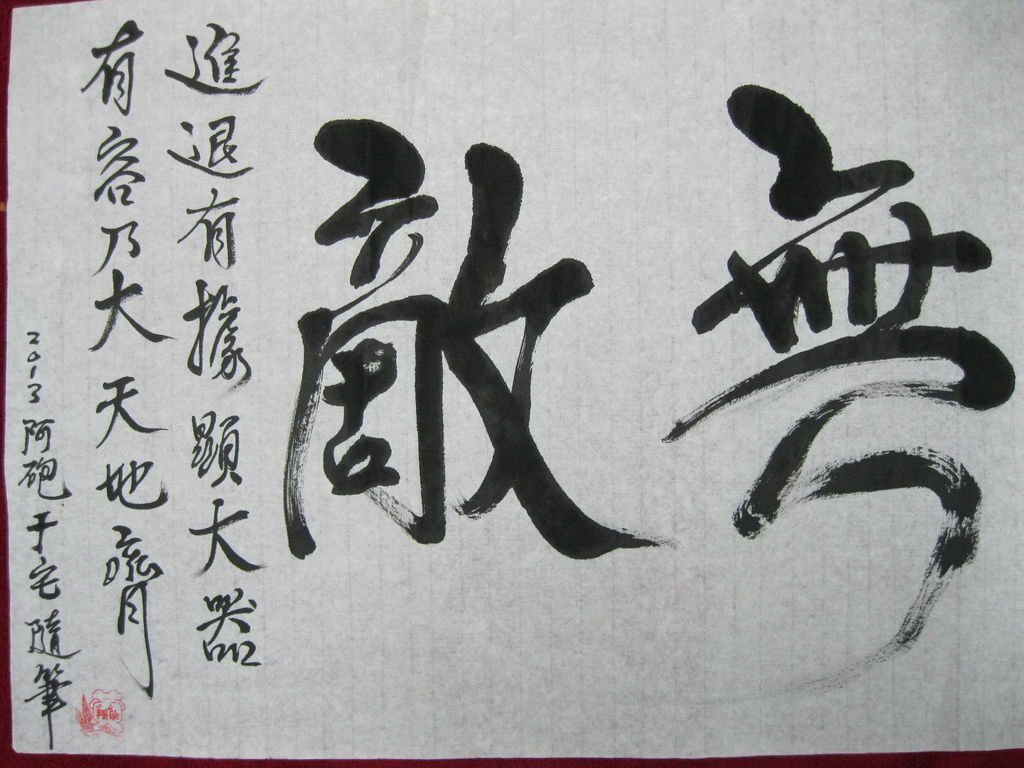 無敵
進退有據 顯大器
有容乃大 天地齊
2013 阿砲于宅隨筆